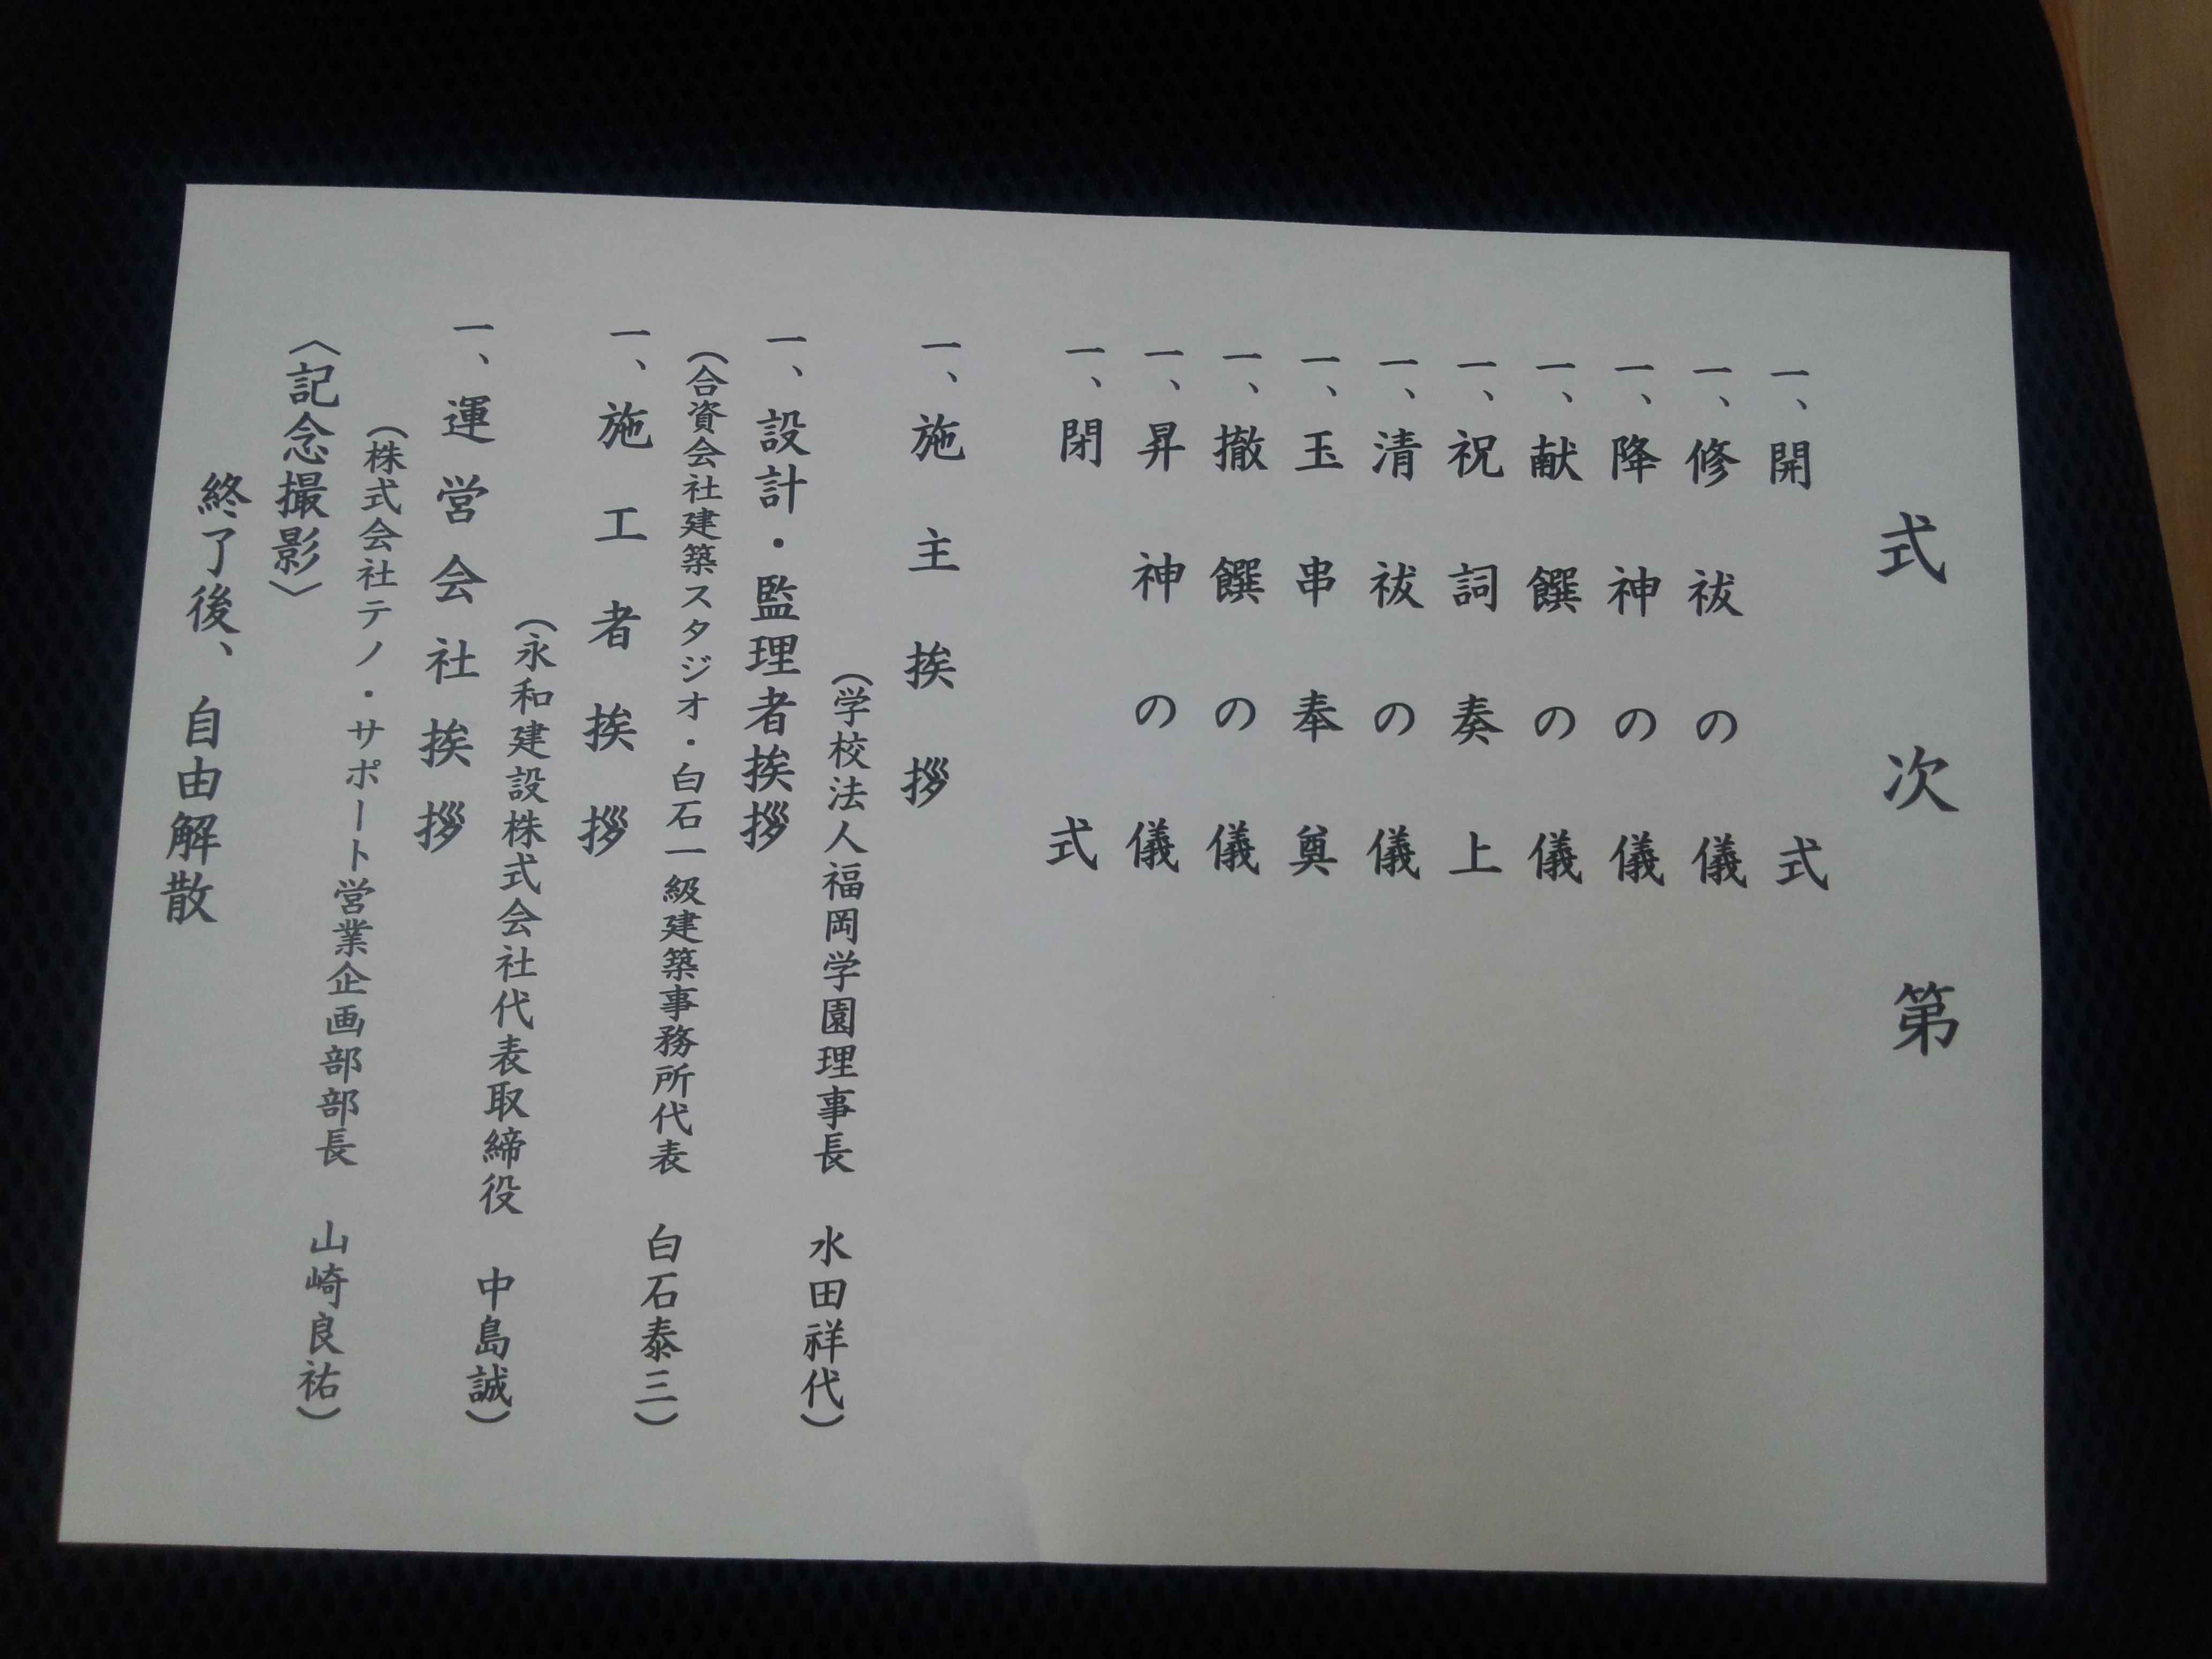 式次第
一、開式
一、修祓の儀
一、降神の儀
一、献饌の儀
一、祝詞奏上
一、清祓の儀
一、玉串奉奠
一、撤饌の儀
一、昇神の儀
一、閉式
一、施主挨拶
（学校法人福岡学園理事長　水田祥代）
一、設計・監理者挨拶
（合資会社建築スタジオ・白石一級建築事務所代表　白石泰三）
一、施工者挨拶
（永和建設株式会社代表取締役　中島誠）
一、運営会社挨拶
（株式会社テノ・サポート営業企画部部長　山崎良祐）
〈記念撮影〉
終了後、自由解散